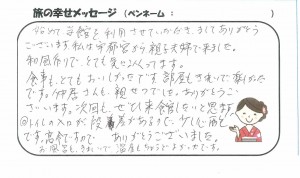 旅の幸せメッセージ (ペンネーム: )
当館を利用させていただき、ましてありがとう
ございます。私は宇都宮から親子夫婦で来ました。
和風作りで、とても気に入ってます。
食事もとてもおいしかったです 部屋もきれいで寒かった
です。仲居さんも、親せつでした。ありがとうござ
います。次回も、ぜひと来館したいと思います
@トイレの入口が段差があるので、少し心配
です。高令ですので ありがとうございました。
お風呂も、きれいで 温度もちょうどよかったです。